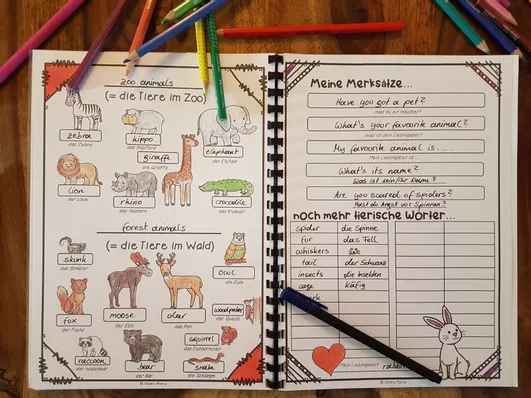 zoo animals
(= die Tiere im Zoo)
zebra
das Zebra
hippo
das Nilpferd
elephant
der Elefant
giraffe
die Giraffe
lion
der Löwe
rhino
das Nashorn
crocodile
das Krokodil
forest animals
(= die Tiere im Wald)
skunk
das Stinktier
owl
die Eule
fox
der Fuchs
moose
der Elch
deer
das Reh
woodpecker
der Specht
raccoon
der Waschbär
bear
der Bär
squirrel
das Eichhörnchen
snake
die Schlange
Meine Merksätze...
Have you got a pet?
Hast du ein Haustier?
What's your favourite animal?
Was ist dein Lieblingstier?
My favourite animal is . . .
Mein Lieblingstier ist ...
What's its name?
Was ist sein/ihr Name?
Are you scared of spiders?
Hast du Angst vor Spinnen?
noch mehr tierische Wörter...
spider die Spinne
fur das Fell
whiskers
tail der Schwanz
insects die Insekten
cage Käfig
Mein Lieblingswort